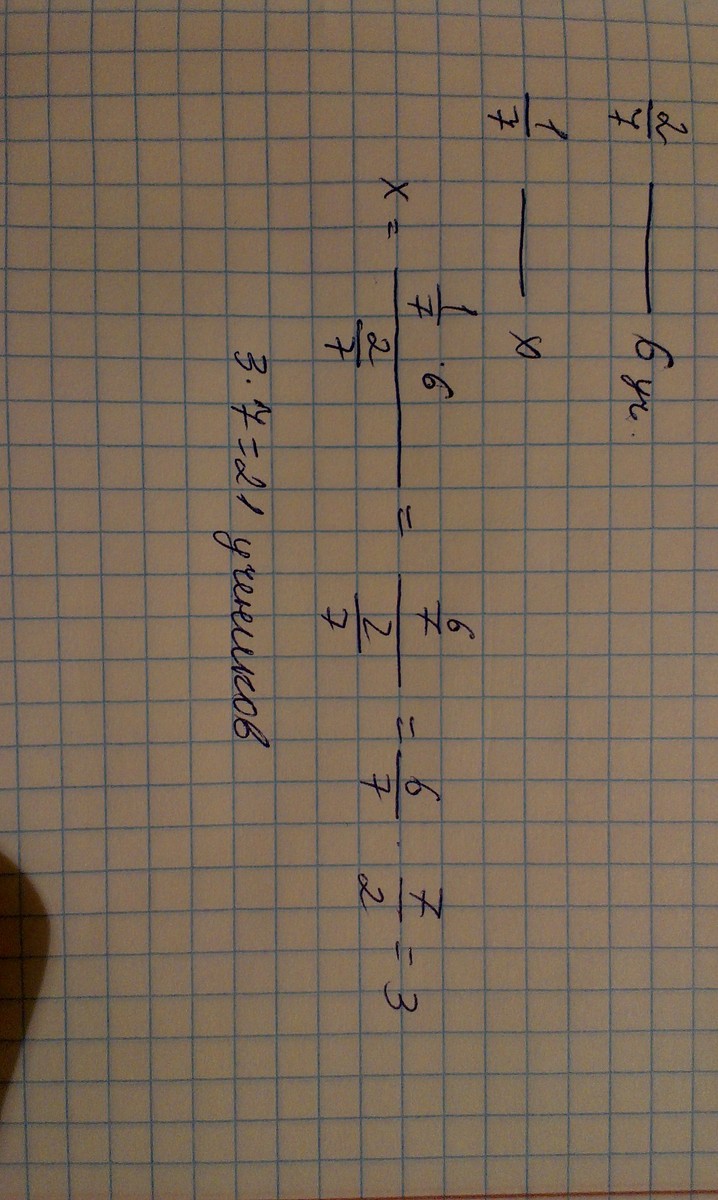 2/7 — 6 уч.
1/7 — x
x = (1/7 · 6)/(2/7) = (6/7)/(2/7) = 6/7 · 7/2 = 3
3 · 7 = 21 учеников